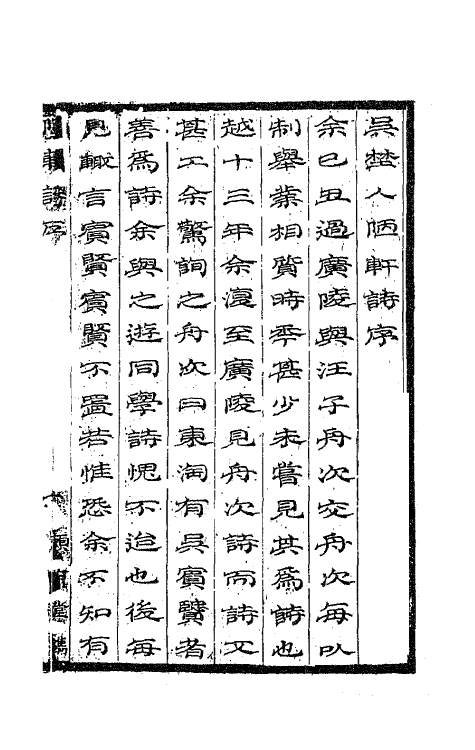 吳埜人陋軒詩序
余己丑過廣陵與汪子舟次交舟次每以
制舉業相質時季甚少未嘗見其爲詩也
越十三年余復至廣陵見舟次詩而詩又
甚工余驚詢之舟次曰東淘有吳賓賢者
善爲詩余與之遊同學詩愧不逮也後每
見輒言賓賢賓賢不置若惟恐余不知有
陋軒詩序